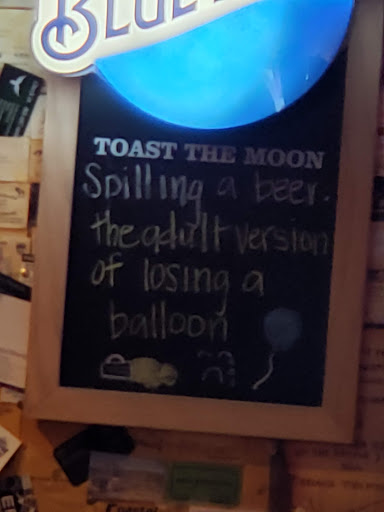 BLUE
TOAST THE MOON
Spilling a beer.
the adult version
of losing a
balloon
Coastal